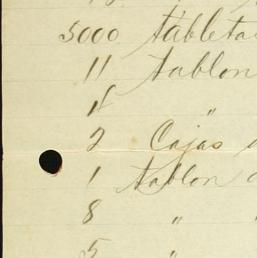 5000 tableta
11 tablon
4 "
2 Cajas d
1 tablon d
8 " "
5 "